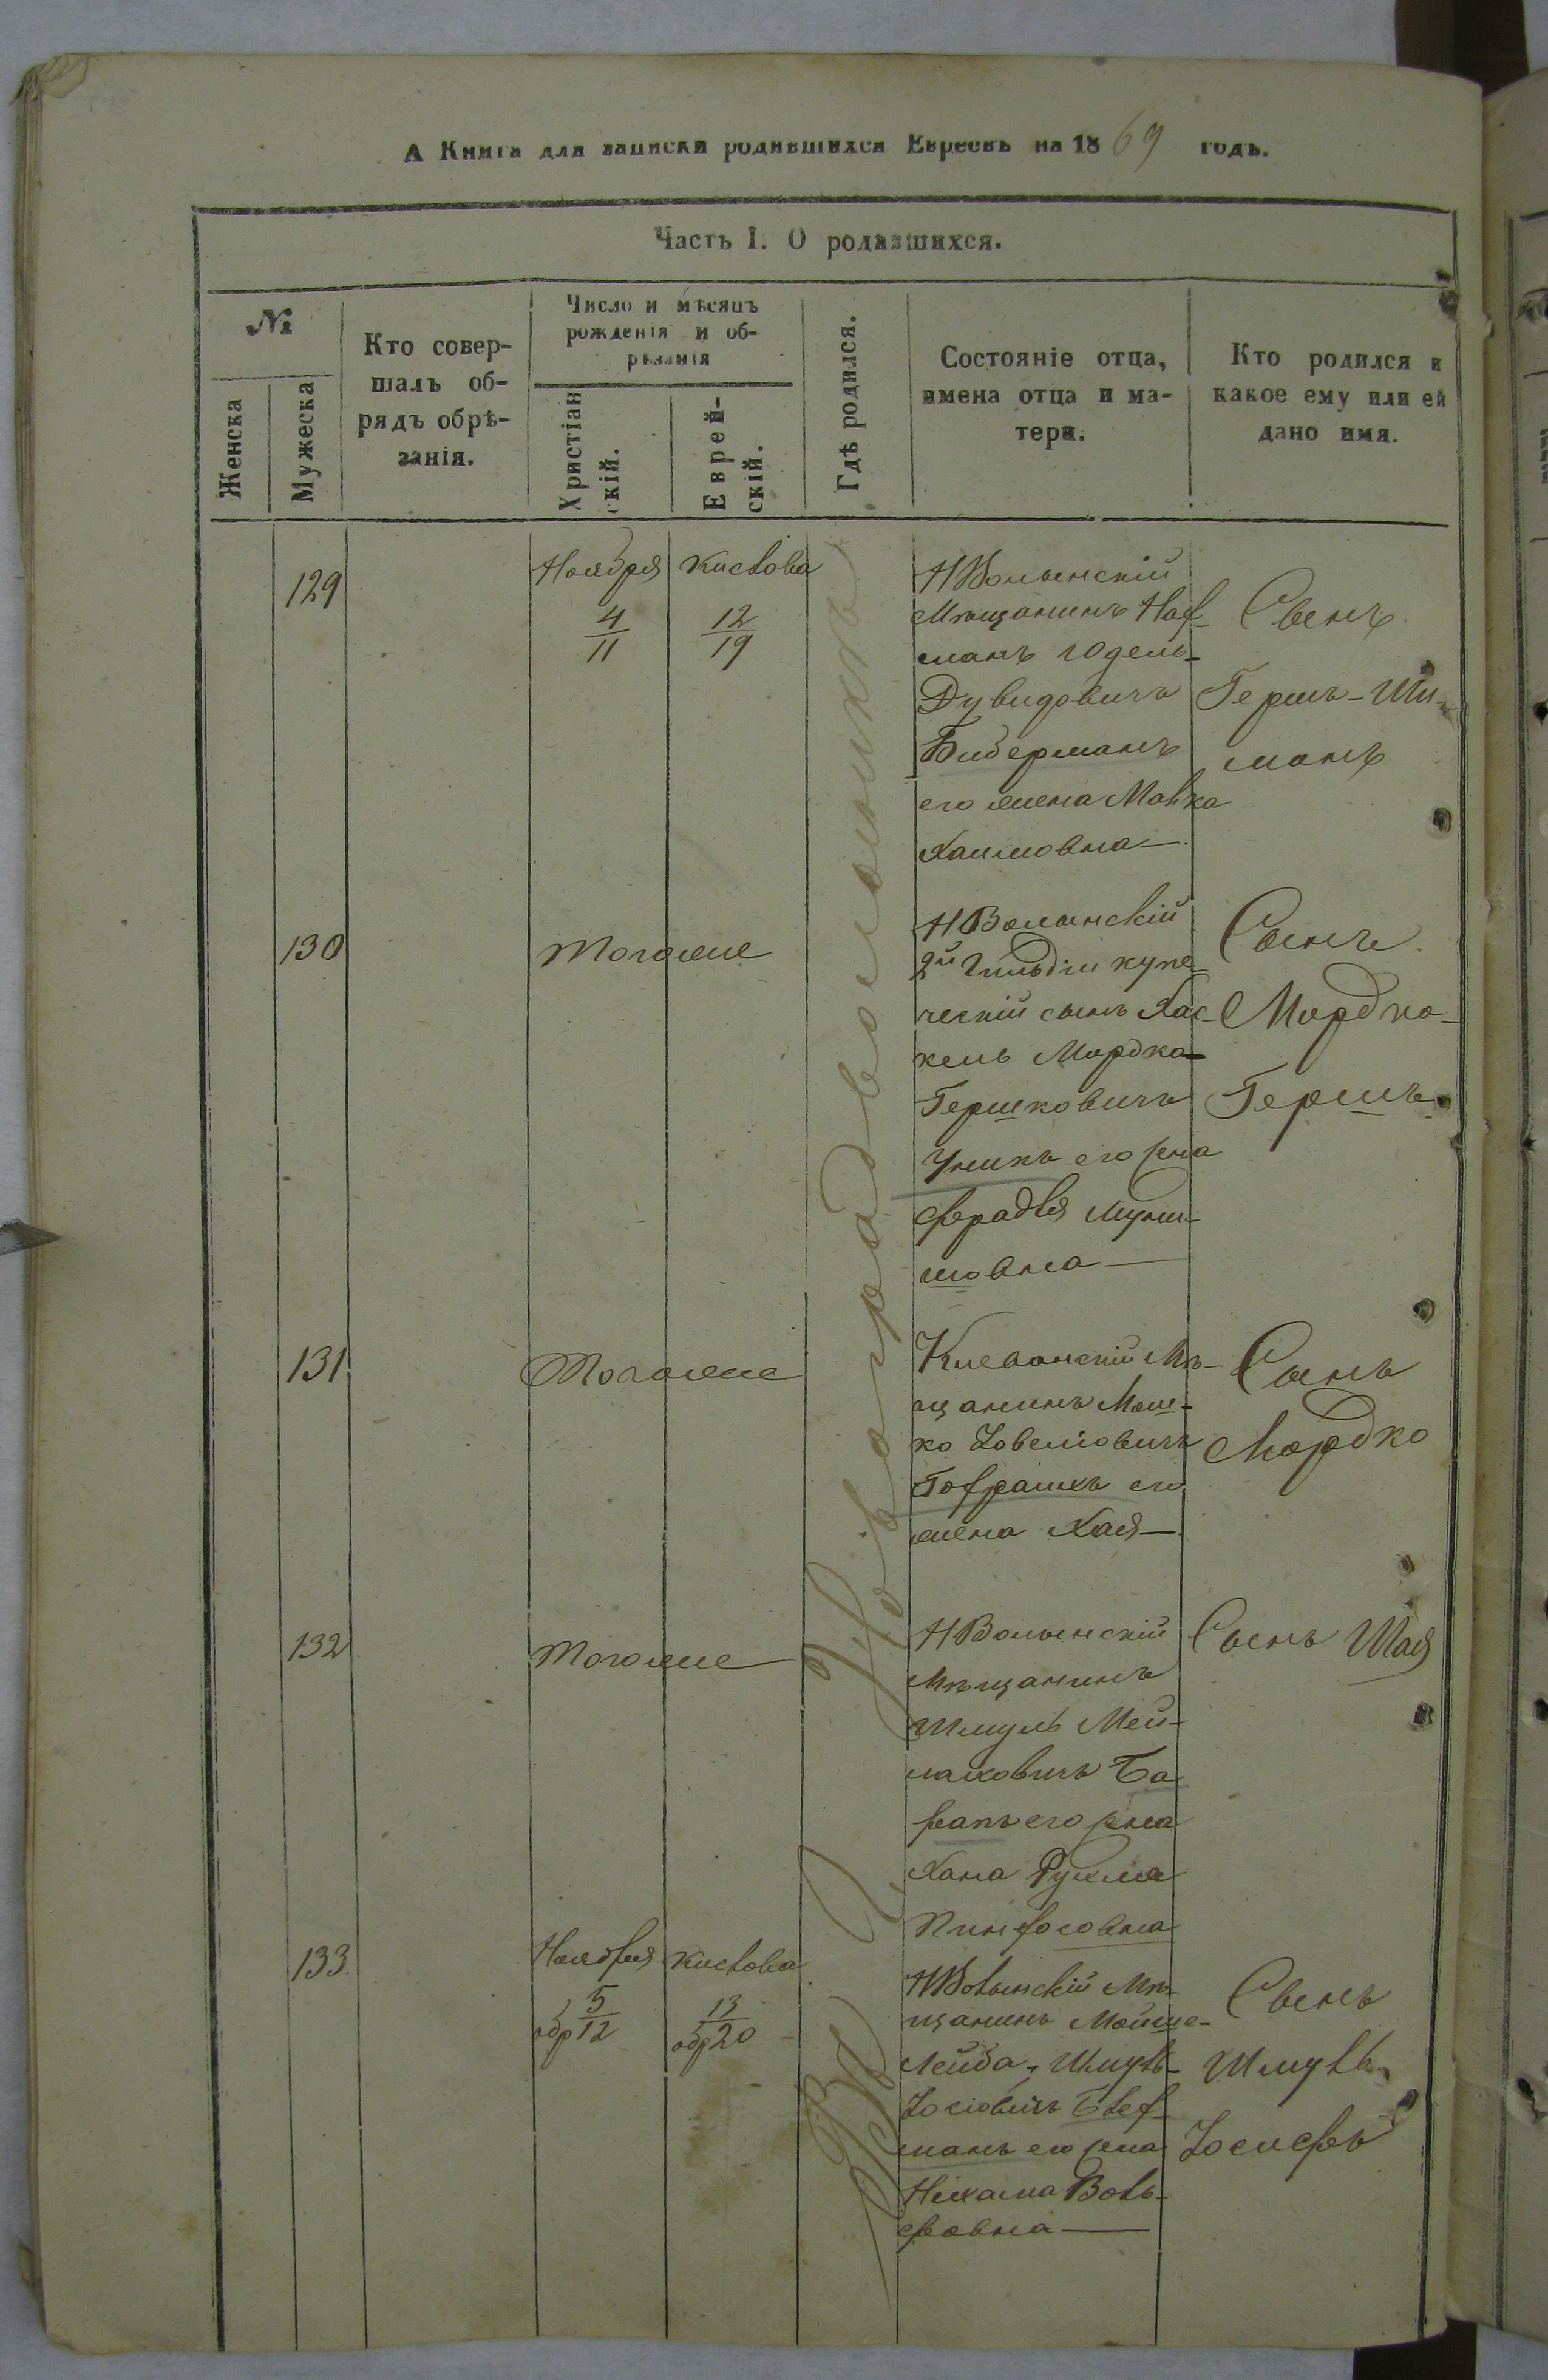 А Книга для записки родившихся Евреевъ на 1869 годъ.
Часть I. О родившихся.
№
Женска
Мужеска
Кто совер-
шалъ об-
рядъ обрѣ-
занія.
Число и мѣсяцъ
рожденія и об-
рѣзанія
Христіан
скій.
Еврей-
скій.
Гдѣ родился.
Состояніе отца,
имена отца и ма-
тери.
Кто родился и
какое ему или ей
дано имя.
Въ Г. Новоградволынскѣ
129
Ноября
4
11
Кислова
12
19
НВолынскій
Мѣщанинъ Наф-
манъ Юдель-
Дувидовичъ
Бидерманъ
его жена Малка
Хаимовна
Сынъ
Гершъ-Ши-
манъ
130
Тогоже
НВолынскій
2й Гильдіи купе
ческій сынъ Хас-
кель Мордко-
Гершковичъ
его жена
Фрадля
мовна
Сынъ
Мордко-
Гершъ
131
Тогоже
Клеванскій Мѣ-
щанинъ Мош-
ко Іовелiовичъ
его
жена Хая
Сынъ
Мордко
132
Тогоже
НВолынскій
Мѣщанинъ
Шмуль Мей-
лаховичъ Ба
его жена
Хана Рухля
Пинфосовна
Сынъ Шая
133
Ноября
5
обр 12
Кислова
13
обр 20
НВолынскій Мѣ
щанинъ Мойше-
Лейба-Шмуль-
Іосіовичъ Глеф-
манъ его жена
Нехама Воль-
фовна
Сынъ
Шмуль
Іосифъ